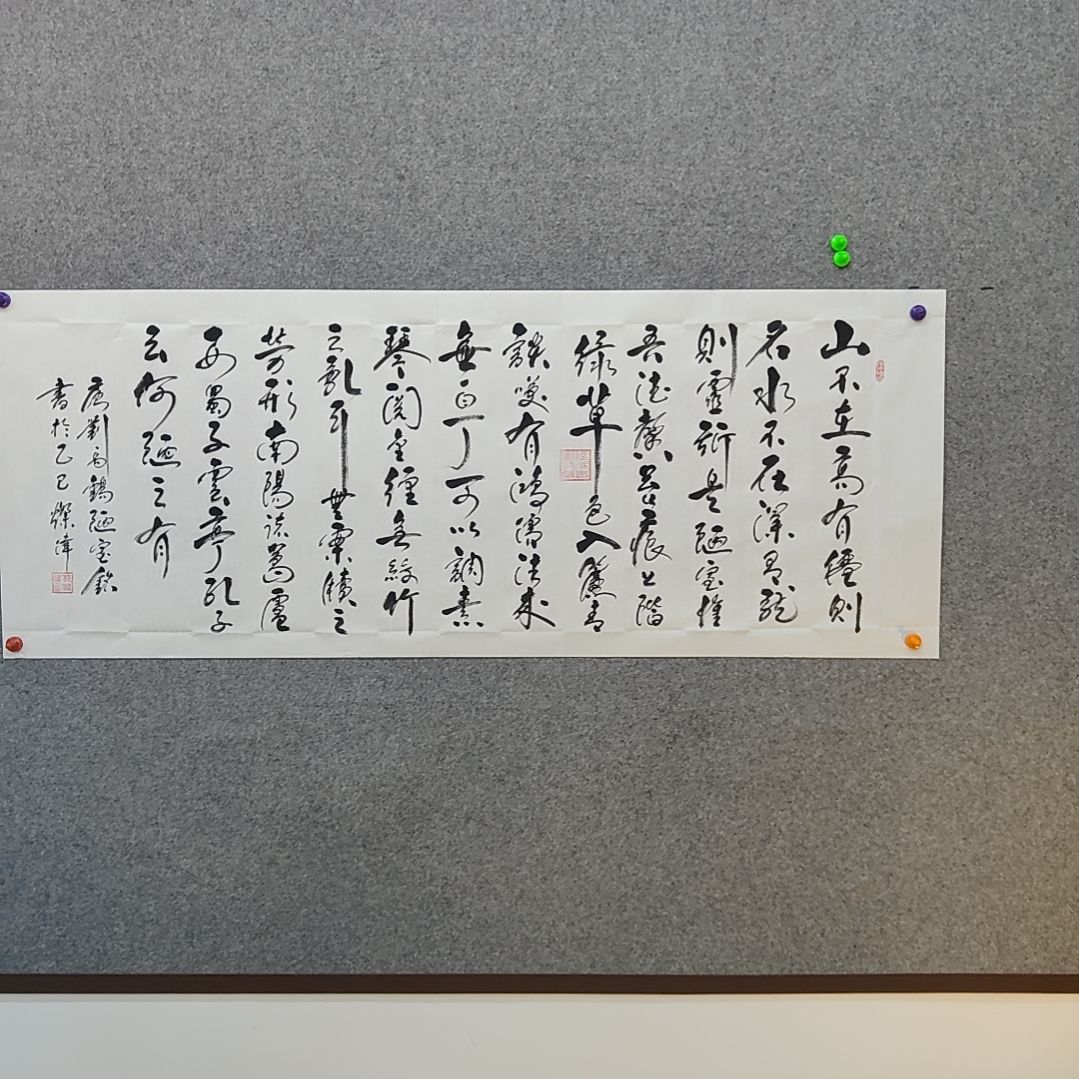 山不在高有僊則
名水不在深有龍
則靈斯是陋室惟
吾德馨苔痕上階
綠草色入簾青
談咲有鴻儒往來
無白丁可以調素
琴閱金經無絲竹
之亂耳無案牘之
勞形南陽諸葛廬
西蜀子雲亭孔子
云何陋之有
唐劉禹錫陋室銘
書於乙巳燦